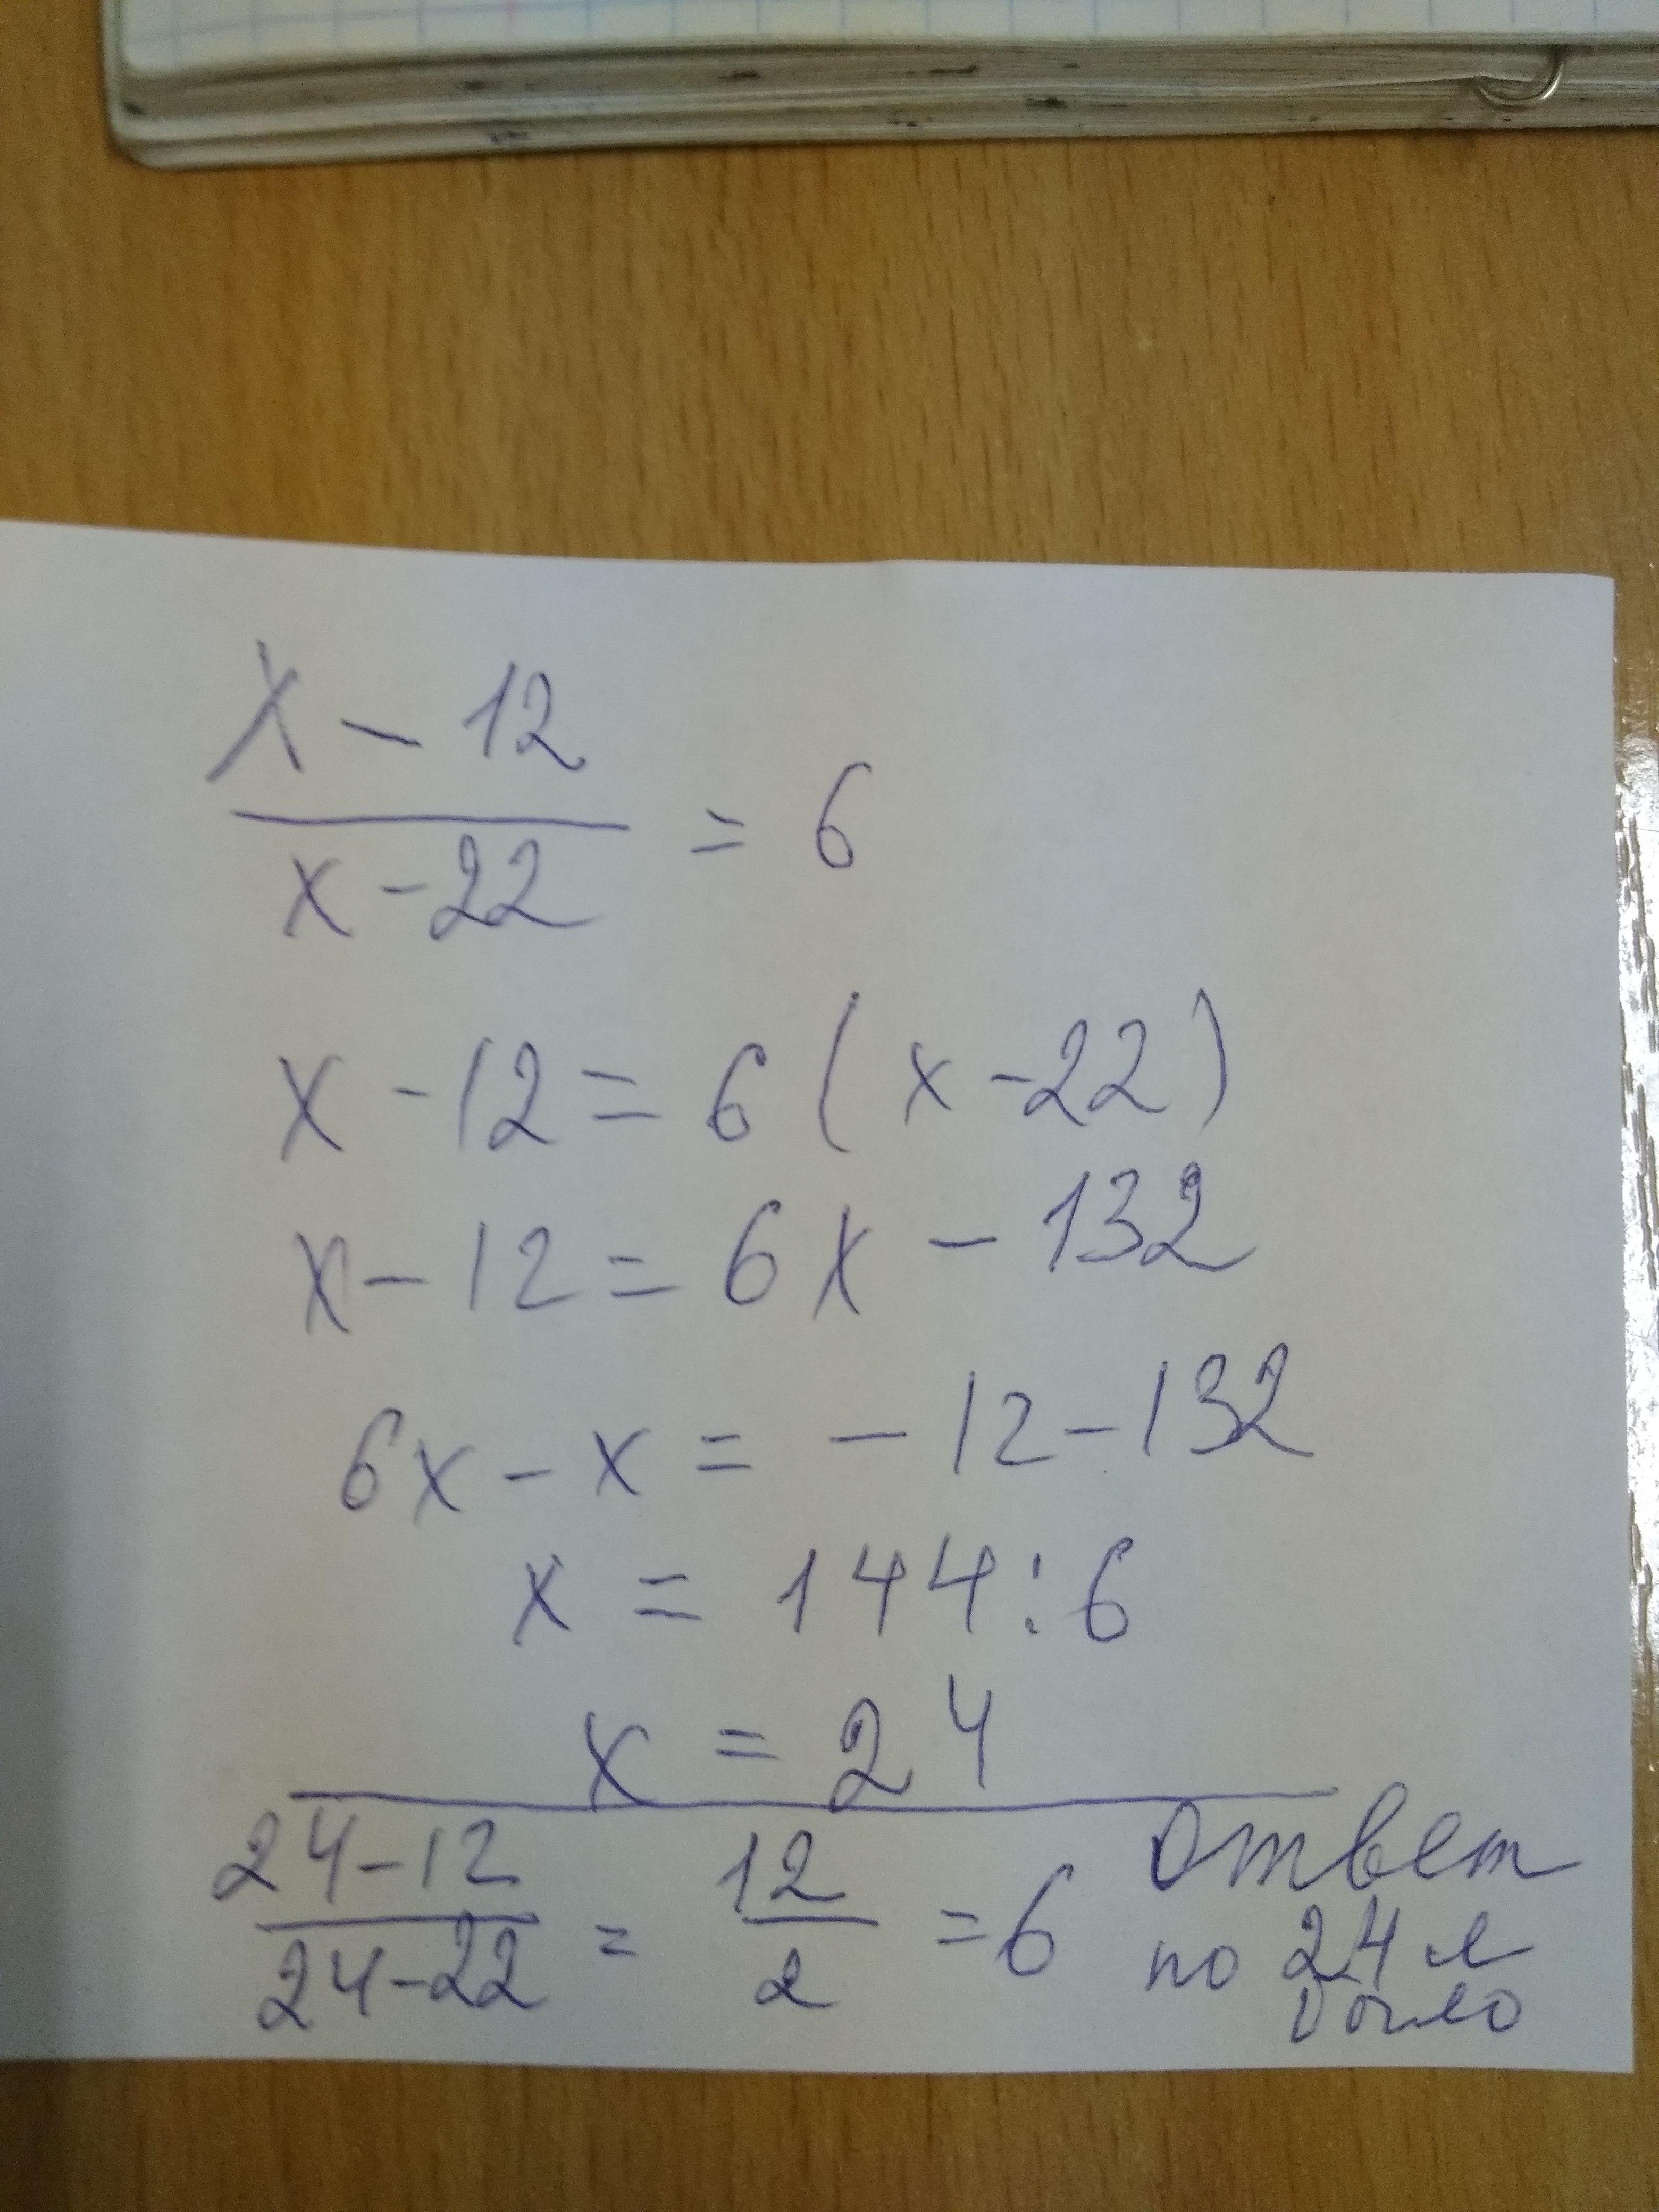 x - 12
x - 22
= 6
x - 12 = 6 (x - 22)
x - 12 = 6x - 132
6x - x = - 12 - 132
x = 144 : 6
x = 24
24 - 12
24 - 22
=
12
2
= 6
Ответ
по 24 л
было